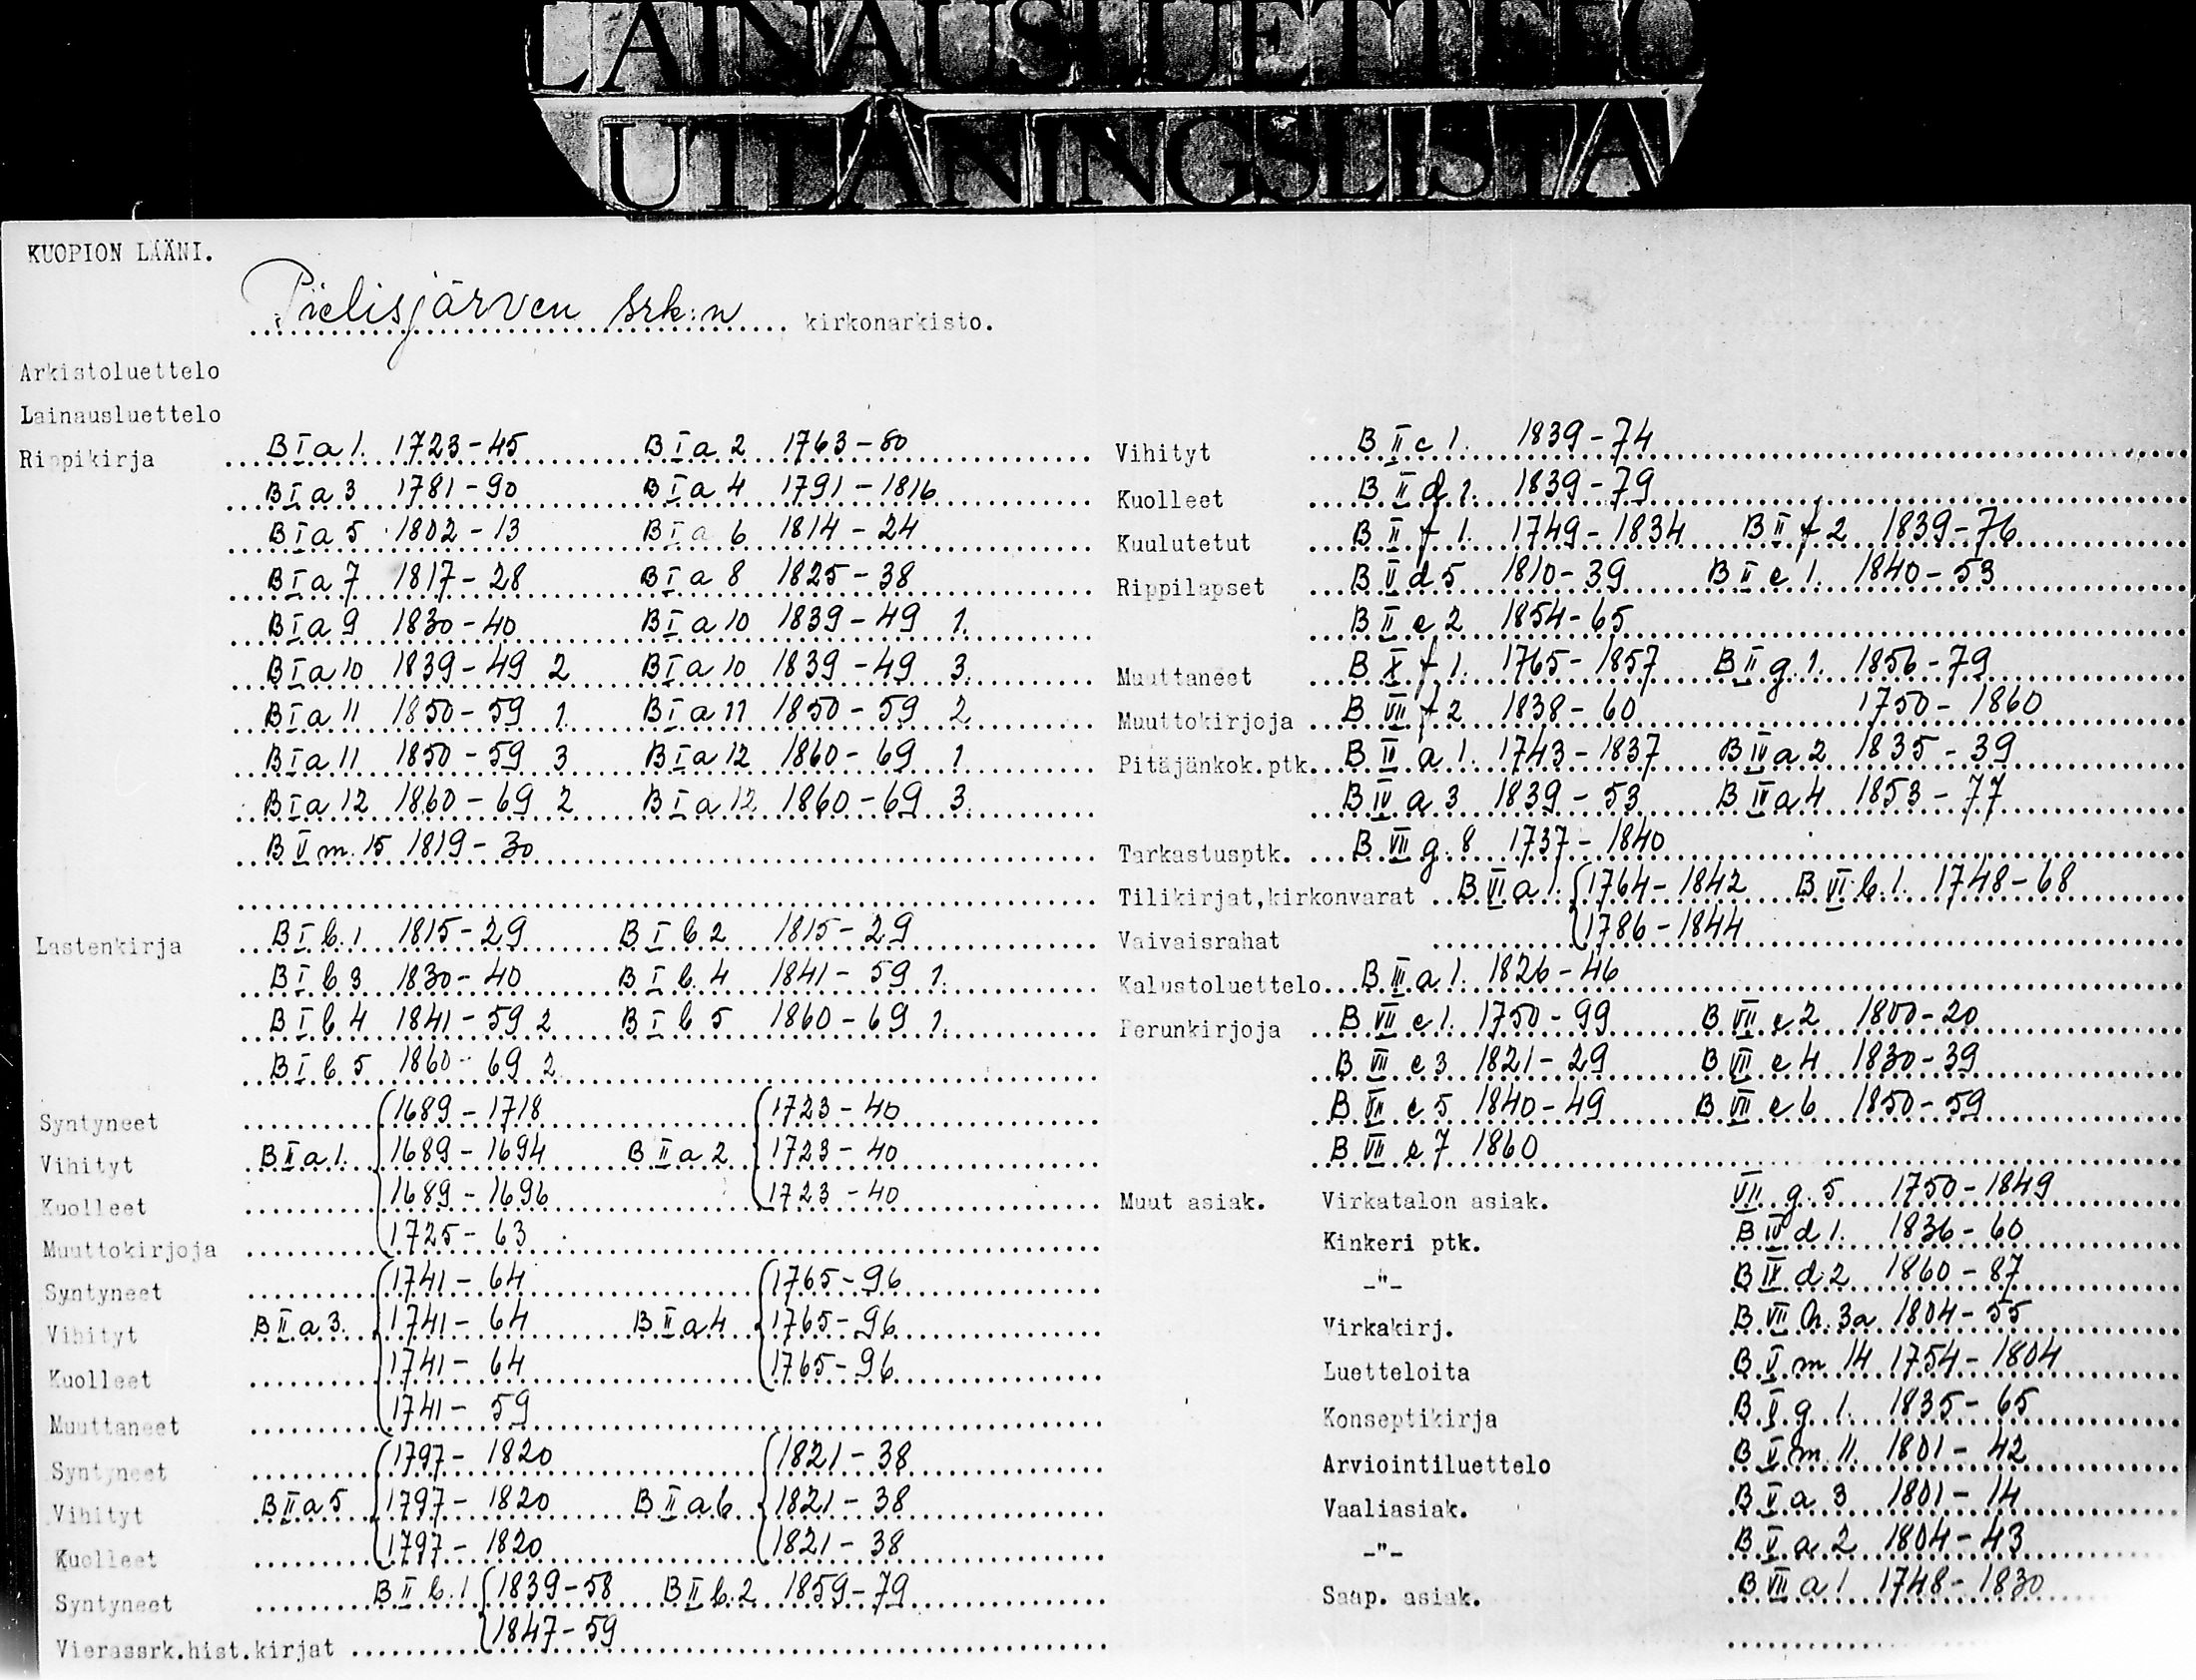 LAINAUSLUETTELO
UTLÅNINGSLISTA
KUOPION LÄÄNI.
Pielisjärven srk:n kirkonarkisto.
Arkistoluettelo
Lainausluettelo
Rippikirja B I a 1. 1723-45 B I a 2 1763-80
B I a 3 1781-90 B I a 4 1791-1816
B I a 5 1802-13 B I a 6 1814-24
B I a 7 1817-28 B I a 8 1825-38
B I a 9 1830-40 B I a 10 1839-49 1.
B I a 10 1839-49 2 B I a 10 1839-49 3.
B I a 11 1850-59 1. B I a 11 1850-59 2
B I a 11 1850-59 3 B I a 12 1860-69 1
B I a 12 1860-69 2 B I a 12 1860-69 3.
B V m. 15 1819-30
Lastenkirja B I b. 1 1815-29 B I b 2 1815-29
B I b 3 1830-40 B I b. 4 1841-59 1.
B I b 4 1841-59 2 B I b 5 1860-69 1.
B I b 5 1860-69 2
Syntyneet 1689-1718 1723-40
Vihityt B II a 1. 1689-1694 B II a 2 1723-40
Kuolleet 1689-1696 1723-40
Muuttokirjoja 1725-63
Syntyneet 1741-64 1765-96
Vihityt B II a 3. 1741-64 B II a 4 1765-96
Kuolleet 1741-64 1765-96
Muuttaneet 1741-59
Syntyneet 1797-1820 1821-38
Vihityt B II a 5 1797-1820 B II a 6 1821-38
Kuolleet 1797-1820 1821-38
Syntyneet B II b. 1 1839-58 B II b. 2 1859-79
Vierassrk.hist.kirjat 1847-59
Vihityt B II c 1. 1839-74
Kuolleet B II d 1. 1839-79
Kuulutetut B II f 1. 1749-1834 B II f 2 1839-76
Rippilapset B V d 5 1810-39 B II e 1. 1840-53
B II e 2 1854-65
Muuttaneet B X f 1. 1765-1857 B II g. 1. 1856-79
Muuttokirjoja B VII f 2 1838-60 1750-1860
Pitäjänkok.ptk. B II a 1. 1743-1837 B IV a 2 1835-39
B IV a 3 1839-53 B IV a 4 1853-77
Tarkastusptk. B VII g. 8 1737-1840
Tilikirjat,kirkonvarat B VI a 1. 1764-1842 B VI b. 1. 1748-68
Vaivaisrahat 1786-1844
Kalustoluettelo B III a 1. 1826-46
Perunkirjoja B VII e 1. 1750-99 B VII e 2 1800-20
B VII e 3 1821-29 B VII e 4 1830-39
B VII e 5 1840-49 B VII e 6 1850-59
B VII e 7 1860
Muut asiak. Virkatalon asiak. VII g. 5 1750-1849
Kinkeri ptk. B IV d 1. 1836-60
-"- B IV d 2 1860-87
Virkakirj. B VII h. 3a 1804-55
Luetteloita B V m 14 1754-1804
Konseptikirja B V g 1. 1835-65
Arviointiluettelo B V m. 11. 1801-42
Vaaliasiak. B V a 3 1801-14
-"- B V a 2 1804-43
Saap. asiak. B VII a 1 1748-1830